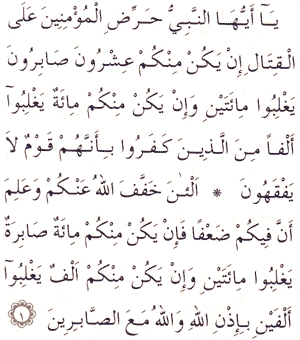 يَآ أَيُّهَا النَّبِيُّ حَرِّضِ الْمُؤْمِنِينَ عَلَى
الْقِتَالِ إِنْ يَكُنْ مِنْكُمْ عِشْرُونَ صَابِرُونَ
يَغْلِبُوا مِائَتَيْنِ وَإِنْ يَكُنْ مِنْكُمْ مِائَةٌ يَغْلِبُوآ
أَلْفاً مِنَ الَّذِينَ كَفَرُوا بِأَنَّهُمْ قَوْمٌ لاَ
يَفْقَهُونَ * اَلْئٰنَ خَفَّفَ اللهُ عَنْكُمْ وَعَلِمَ
أَنَّ فِيكُمْ ضَعْفًا فَإِنْ يَكُنْ مِنْكُمْ مِائَةٌ صَابِرَةٌ
يَغْلِبُوا مِائَتَيْنِ وَإِنْ يَكُنْ مِنْكُمْ اَلْفٌ يَغْلِبُوآ
أَلْفَيْنِ بِإِذْنِ اللهِ وَاللهُ مَعَ الصَّابِرِينَ ١